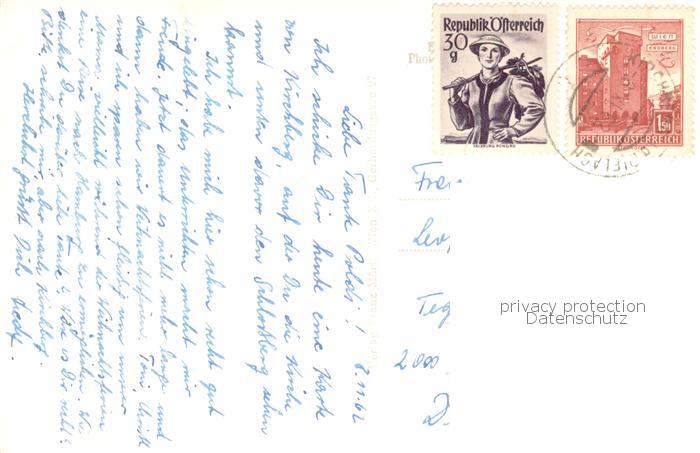 8.11.62
Liebe Tante Poldi!
Ich schicke Dir heute eine Karte
von Kirchberg, auf die Du die Kirche
und unten davor den Schloßberg sehen
kannst.
Ich habe mich hier schon recht gut
eingelebt, das Unterrichten macht mir
Freude jetzt dauert es nicht mehr lange und
dann haben wir Weihnachtsferien. Toni, Christl
und ich sparen schon fleißig um unserer
Mama vielleicht während der Weihnachtsferien
eine Reise nach Hamburg zu ermöglichen. Wie
denkst Du darüber liebe Tante? Wäre es Dir recht?
Bitte, schreib mir aber nach Kirchberg.
Herzlichst grüßt Dich
Republik Österreich
30
g
SALZBURG PONGAU
WIEN
ERDBERG
1.50
REPUBLIK ÖSTERREICH
Frau
Leop
Teg
2000
D
privacy protection
Datenschutz